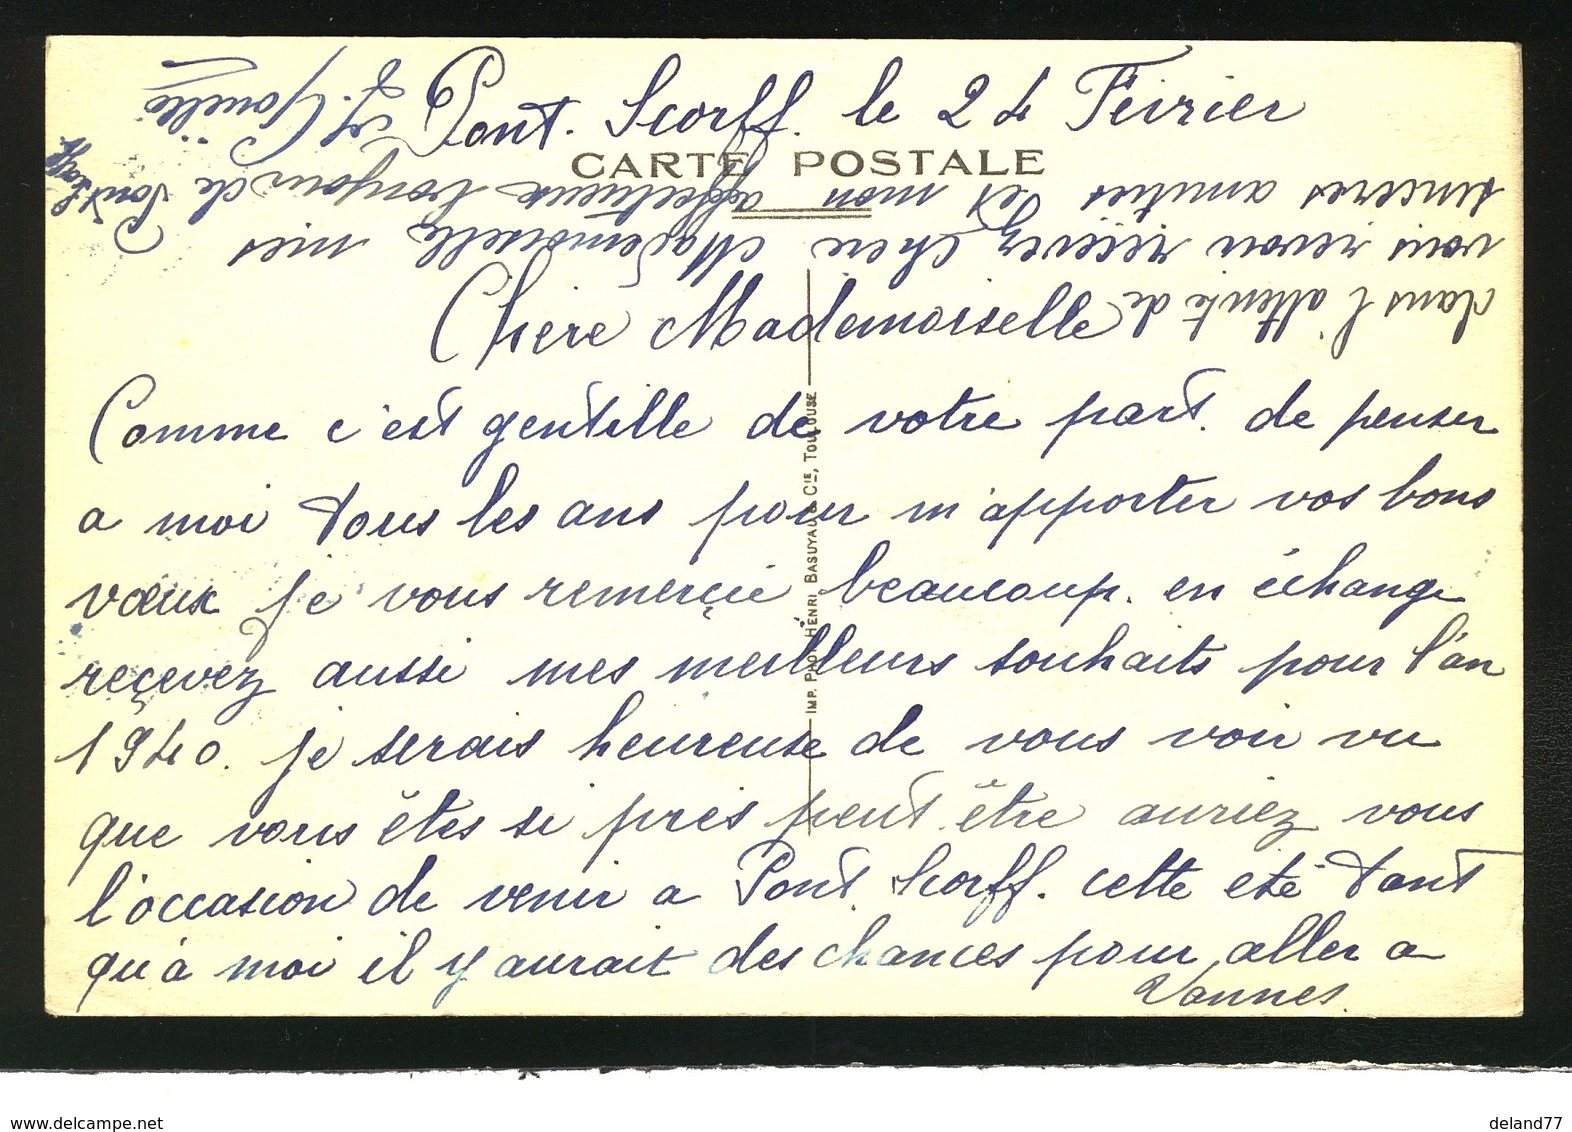 Pont. Scorff. le 24 Février
CARTE POSTALE
Chère Mademoiselle
Comme c'est gentille de votre part. de penser
a moi tous les ans pour m'apporter vos bons
vœux je vous remerçie beaucoup. en échange
reçevez aussi mes meilleurs souhaits pour l'an
1940. je serais heureuse de vous voir vu
que vous êtes si près peut être auriez vous
l'occasion de venir a Pont Scorff. cette eté tant
qu'à moi il y aurait des chances pour aller a
Vannes.
dans l'attente de
vous revoir recevez Chère Mademoiselle mes
sincères amitiés et mon affectueux bonjour de Pont Scorff
IMP. PHOT. HENRI BASUYAU & CIE, TOULOUSE
www.delcampe.net
deland77